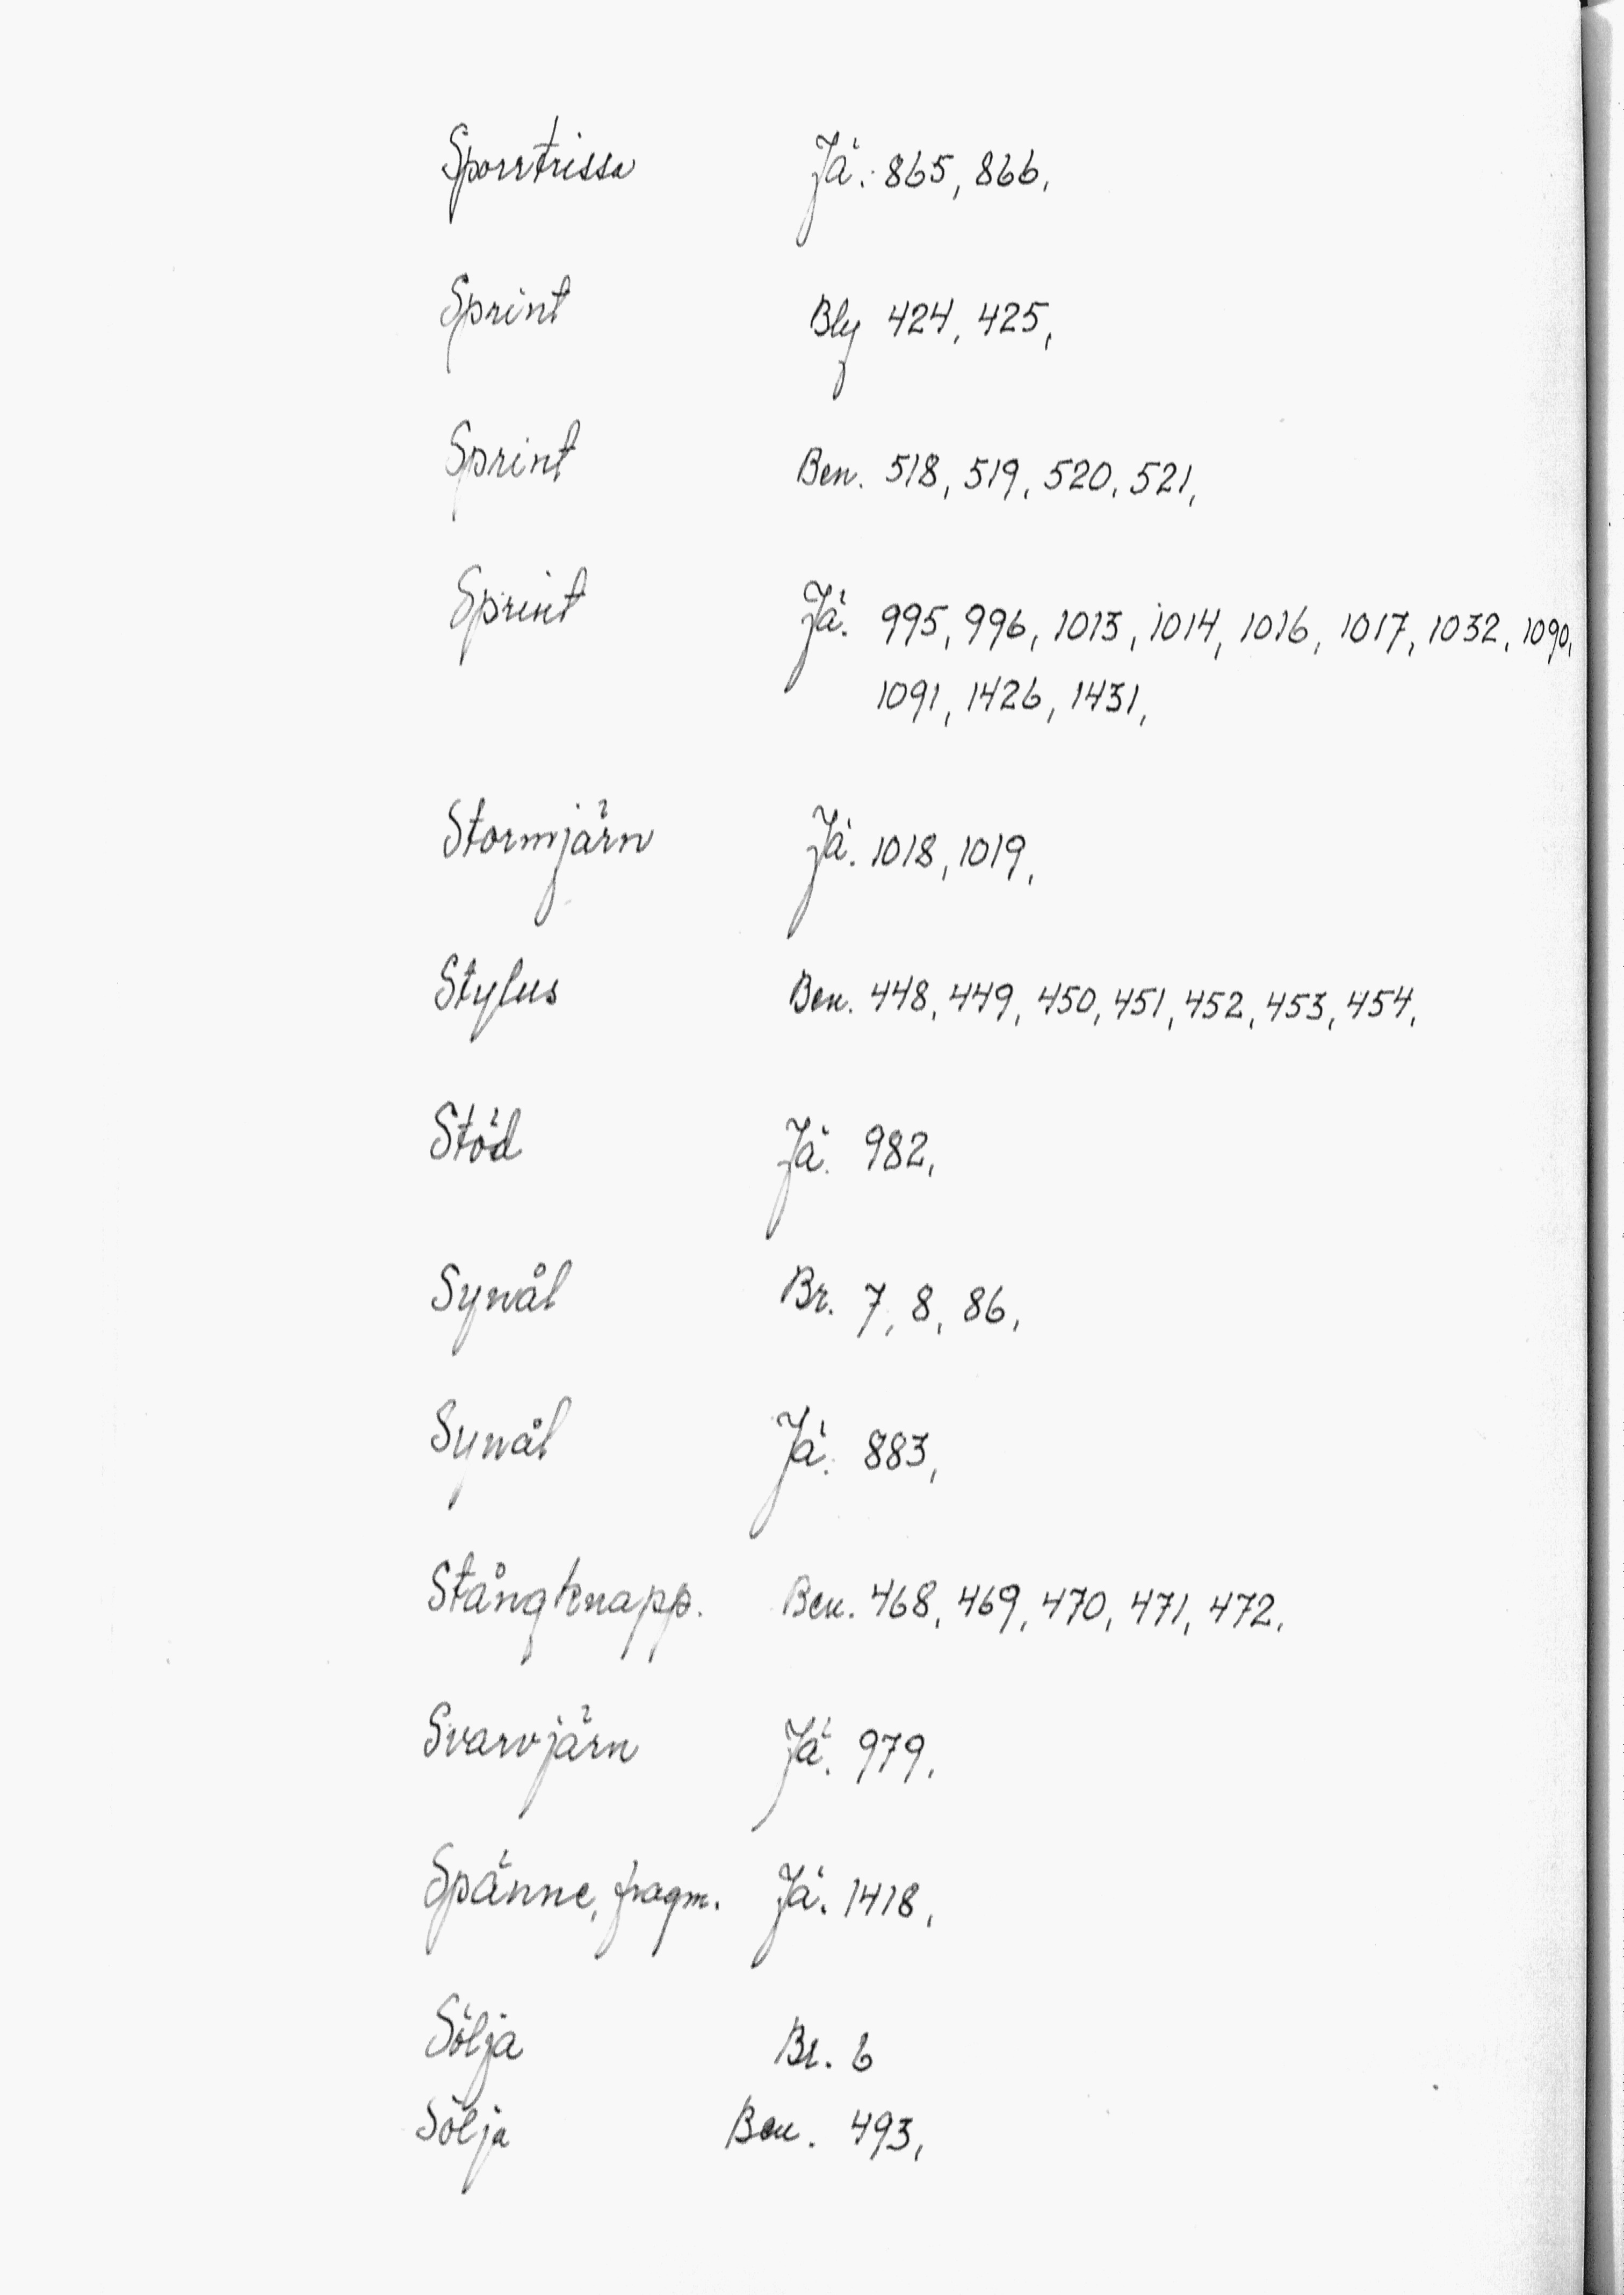 Sporrtrissa Jä. 865, 866,
Sprint Bly 424, 425,
Sprint Ben. 518, 519, 520, 521,
Sprint Jä. 995, 996, 1013, 1014, 1016, 1017, 1032, 1090,
1091, 1426, 1431,
Stormjärn Jä. 1018, 1019,
Stylus Ben. 448, 449, 450, 451, 452, 453, 454,
Stöd Jä. 982,
Synål Br. 7, 8, 86,
Synål Jä. 883,
Stångknapp. Ben. 468, 469, 470, 471, 472,
Svarvjärn Jä. 979,
Spänne, fragm. Jä. 1418,
Sölja Br. 6
Sölja Ben. 493,